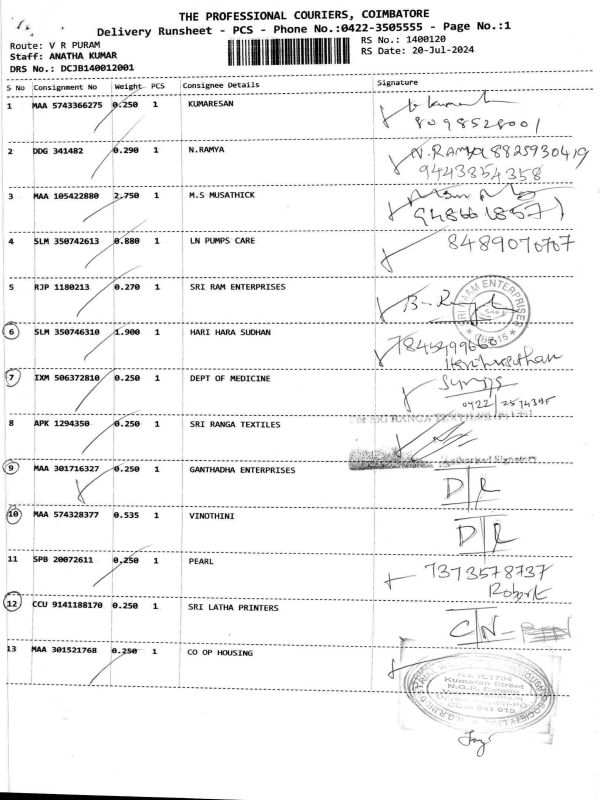 THE PROFESSIONAL COURIERS, COIMBATORE
Delivery Runsheet - PCS - Phone No.:0422-3505555 - Page No.:1
Route: V R PURAM
RS No.: 1400120
Staff: ANATHA KUMAR
RS Date: 20-Jul-2024
DRS No.: DCJB140012001
S No Consignment No Weight PCS Consignee Details Signature
1 MAA 5743366275 0.250 1 KUMARESAN
8098528001
2 DDG 341482 0.290 1 N.RAMYA N.RAMYA 8825930419
9443354358
3 MAA 105422880 2.750 1 M.S MUSATHICK
4 SLM 350742613 0.880 1 LN PUMPS CARE 8489070707
5 RJP 1180213 0.270 1 SRI RAM ENTERPRISES
SRI RAAM ENTERPRISES
6 SLM 350746310 1.900 1 HARI HARA SUDHAN
7 IXM 506372810 0.250 1 DEPT OF MEDICINE
0422/2574375
8 APK 1294350 0.250 1 SRI RANGA TEXTILES
Authorised Signatory
9 MAA 301716327 0.250 1 GANTHADHA ENTERPRISES D/L
10 MAA 574328377 0.535 1 VINOTHINI D/L
11 SPB 20072611 0.250 1 PEARL 7373578737
Robert
12 CCU 9141188170 0.250 1 SRI LATHA PRINTERS C/N-
13 MAA 301521768 0.250 1 CO OP HOUSING
No. K.1704
Kumaran Street
N.G.R.